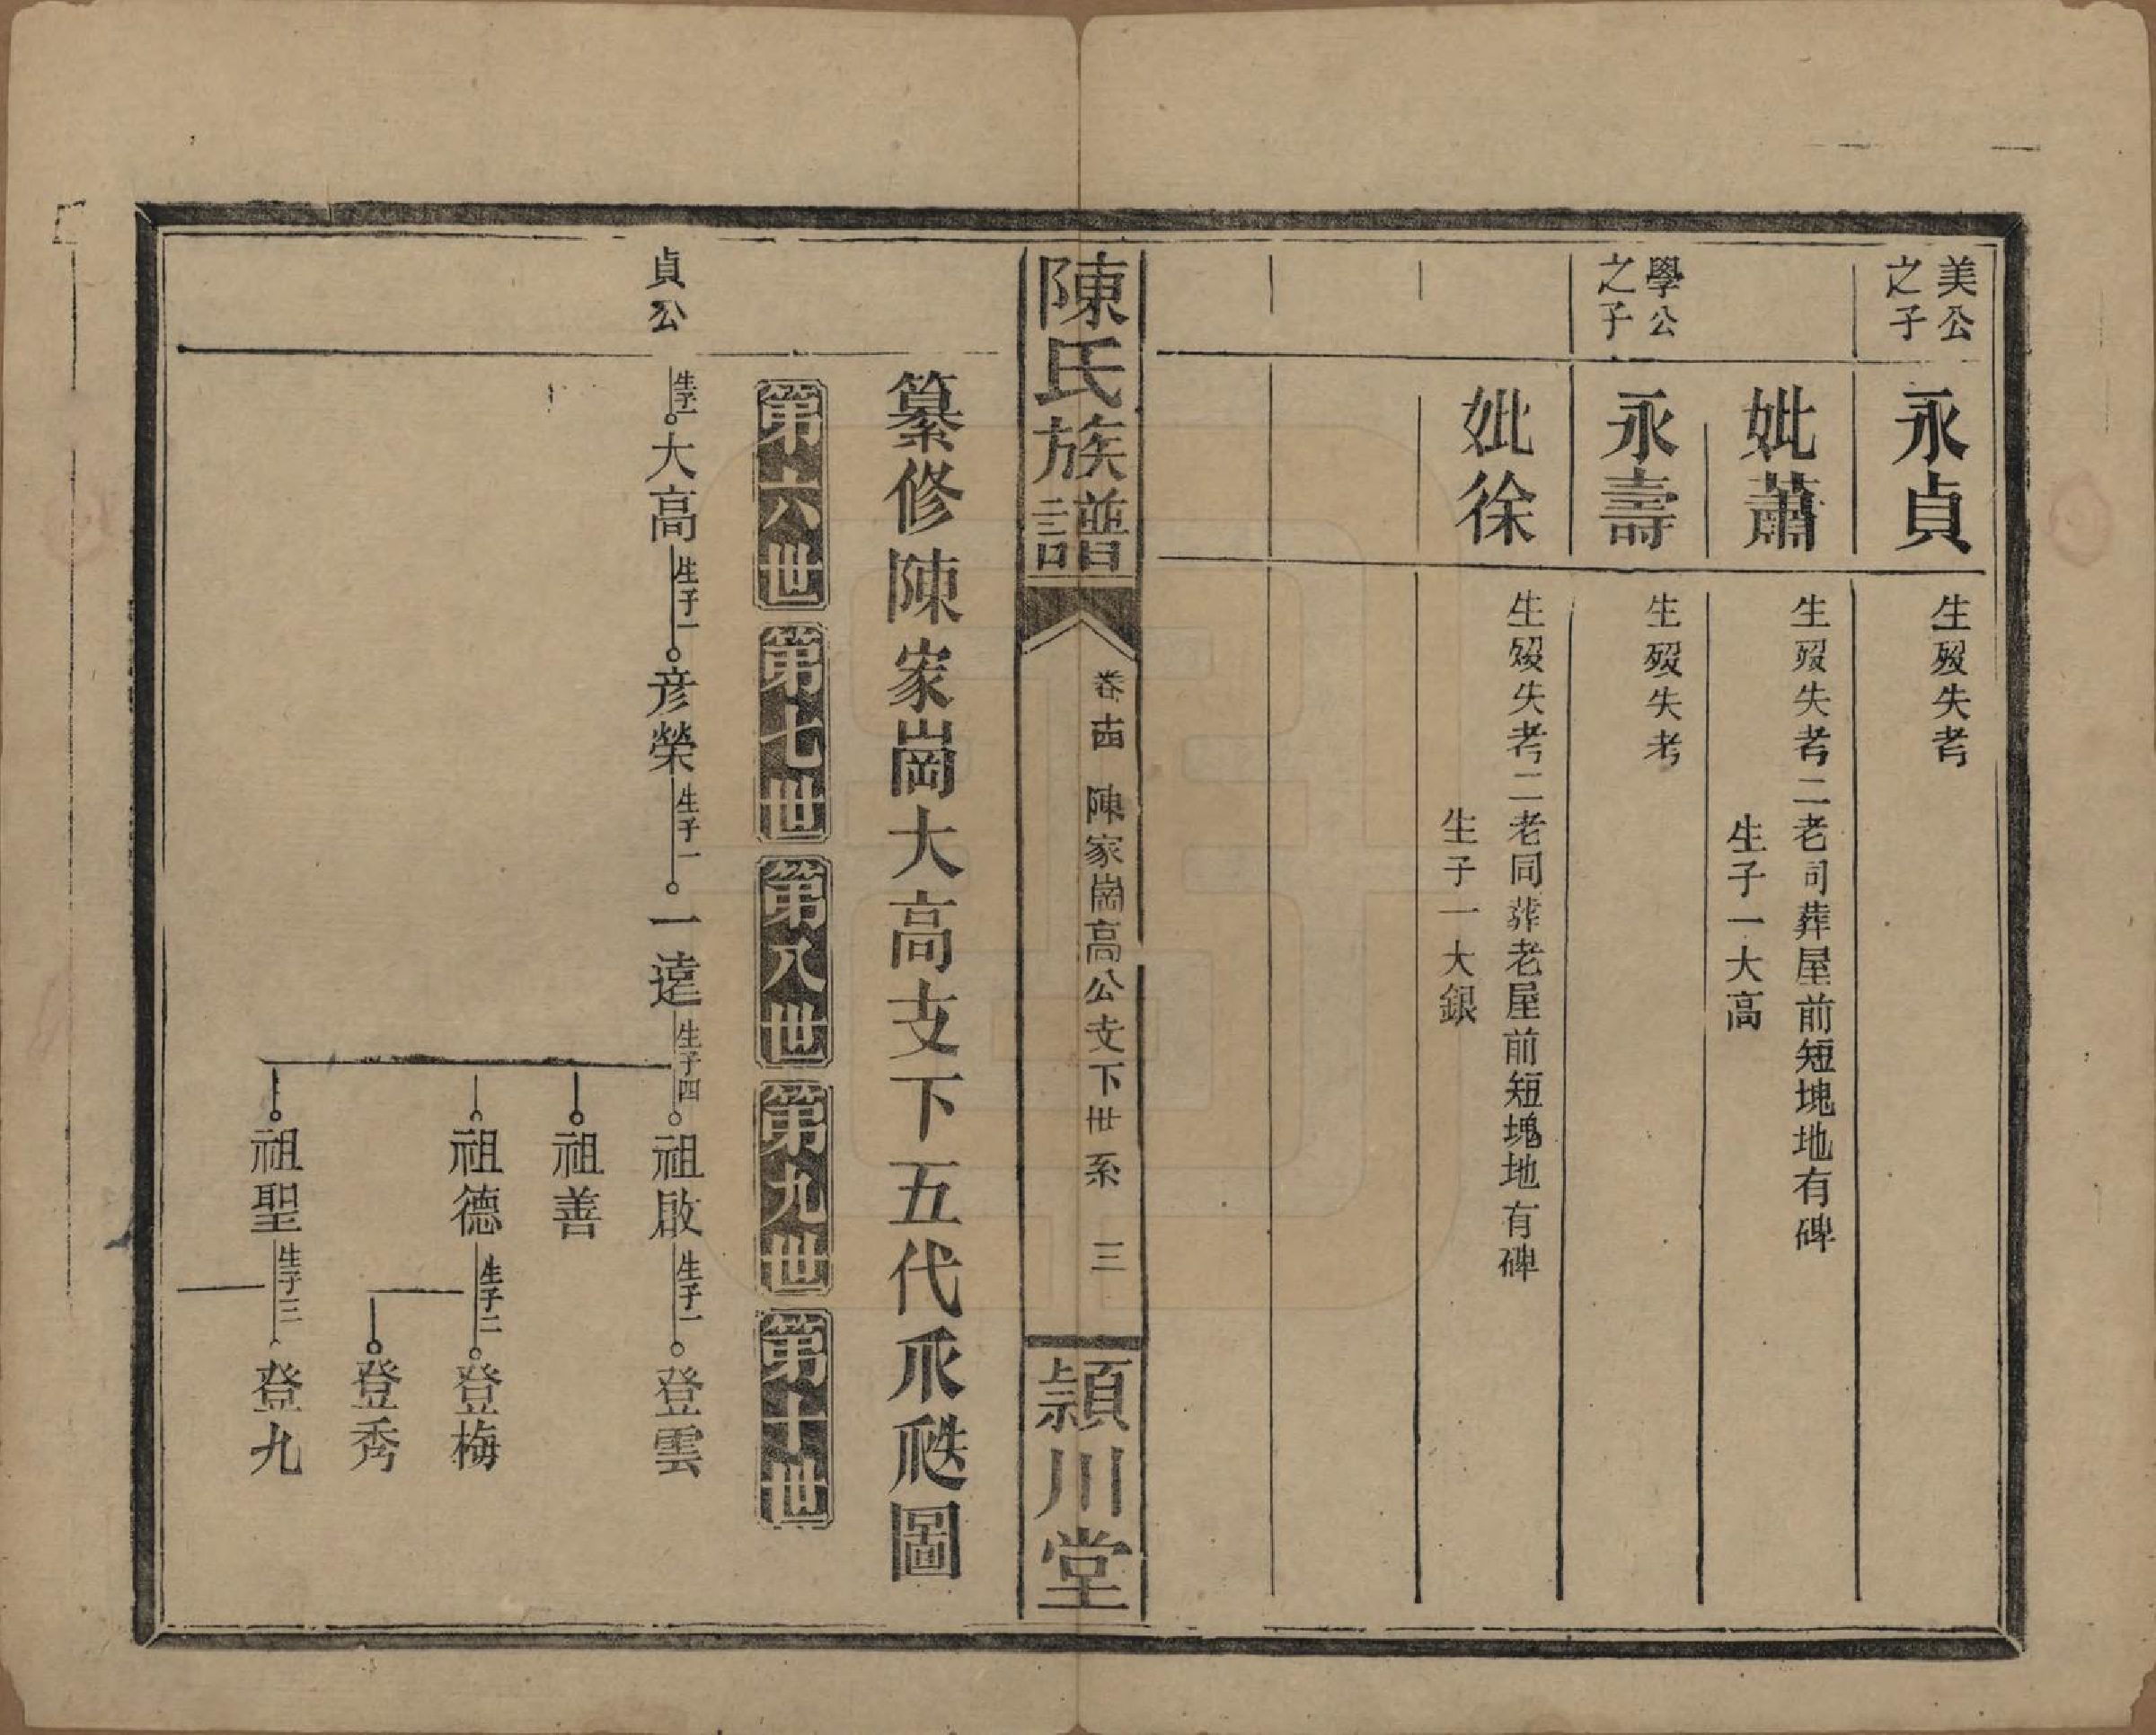 美公
之子
永貞
生歿失考
妣蕭
生歿失考二老司葬屋前短塊地有碑
生子一大高
學公
之子
永壽
生歿失考
妣徐
生歿失考二老同葬老屋前短塊地有碑
生子一大銀
陳氏族譜
卷十四
陳家崗高公支下世系
三
潁川堂
纂修陳家崗大高支下五代𠂢瓞圖
第六世
第七世
第八世
第九世
第十世
貞公
生子一
大高
生子一
彦榮
生子一
一逵
生子四
祖啟
生子一
登雲
祖善
祖德
生子二
登梅
登秀
祖聖
生子三
登九